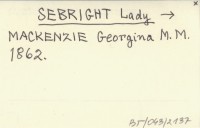 SEBRIGHT Lady →
MACKENZIE Georgina M. M.
1862.
BT/043/2137